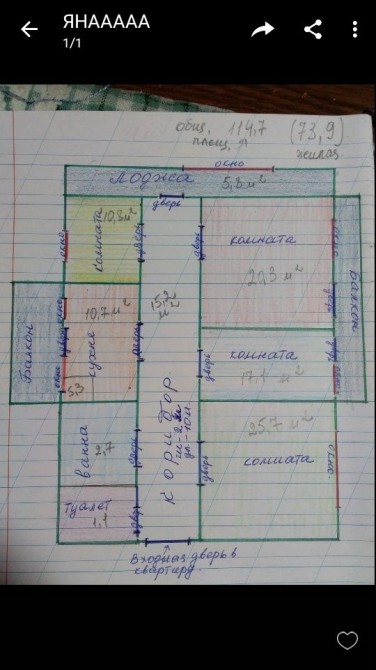 ЯНААААА
1/1
общ. 114,7 (73,9)
площ. жилая
окно
Лоджа 5,3 м²
дверь
комната 10,8 м²
окно
дверь
дверь
комната
20,3 м²
окно
дверь
Балкон
15,2 м²
Балкон
окно
дверь
окно
10,7 м²
кухня
5,3
дверь
комната
17,1 м²
дверь
дверь
окно
Коридор
ш-2 м
дл-10 м
ванна
2,7
дверь
25,7 м²
комната
дверь
окно.
туалет
1,1
дверь
Входная дверь в
квартиру.